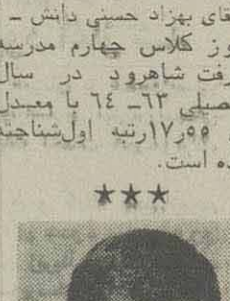 قای بهزاد حسینی دانش ـ
وز کلاس چهارم مدرسه
رفت شاهرود در سال
صیلی ۶۳ـ ۶۴ با معدل
۱۷٫۵۵ رتبه اول شناخته
ده است.
★★★